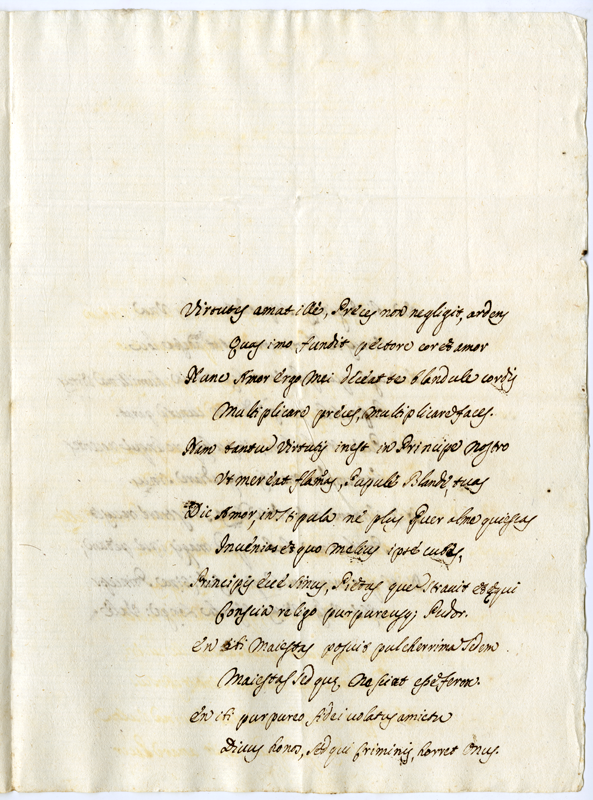 Virtutes amat ille, Preces non negligit, ardens
Quas imo fundit pectore cor et amor
Nunc Amor ergo Mei deceat te blandule cordis
Multiplicare preces, multiplicare faces.
Nam tantu Virtutis inest in Principe Nostro
Ut mereat flamas, Pupule Blande, tuas
Dic Amor, in
Invenias et quo melius ipse cubes,
Principis ecce sinus, Pietas que stravit et equi
Conscia religo purpureusq; Pudor.
En iti Maiestas posuit pulcherrima Sedem
Maiestas sed quę Nesciat esse ferox.
En iti purpureo Adei volatus amictu
Divus honos, sed qui Criminis, horret Onus.